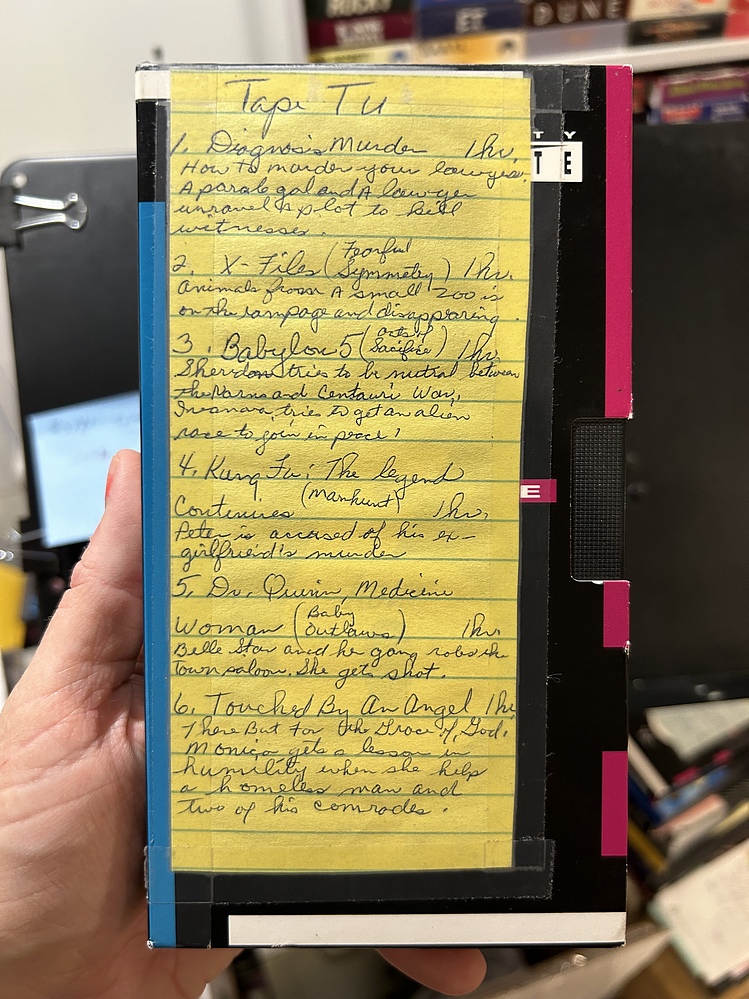 ET
DUNE
Tape TU
T Y
T E
1. Diagnosis Murder 1hr.
How to murder your lawyer.
A paralegal and A lawyer
unravel A plot to kill
witnesses.
2. X-Files (Fearful Symmetry) 1hr.
animals from A small zoo is
on the rampage and disappearing.
3. Babylon 5 (acts of Sacrifice) 1hr.
Sheridan tries to be nutral between
the Narns and Centauri War,
Ivanova tries to get an alien
race to join in peace!
4. Kung Fu: The legend
Contenues (Manhunt) 1hr.
Peter is accused of his ex-
girlfriend's murder
E
5. Dr. Quinn, Medicine
Woman (Baby Outlaws) 1hr.
Belle Star and he gang robs the
Town saloon. She gets shot.
6. Touched By An Angel 1hr
There But For the Grace of God.
Monica gets a lesson in
humility when she helps
a homeless man and
two of his comrades.